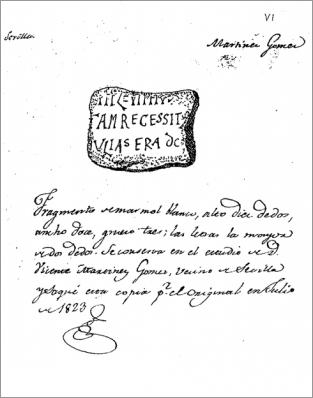 VI
Sevilla.
Martinez Gomez
TAM RECESSIT
VIIAS ERA dC
Fragmento de marmol blanco, alto diez dedos,
ancho doce, grueso tres; las letras la mayor
de dos dedos. Se conserva en el estudio de D.
Vicente Martinez Gomez, vecino de Sevilla
y saqué esta copia pr. el Original en Julio
de 1823